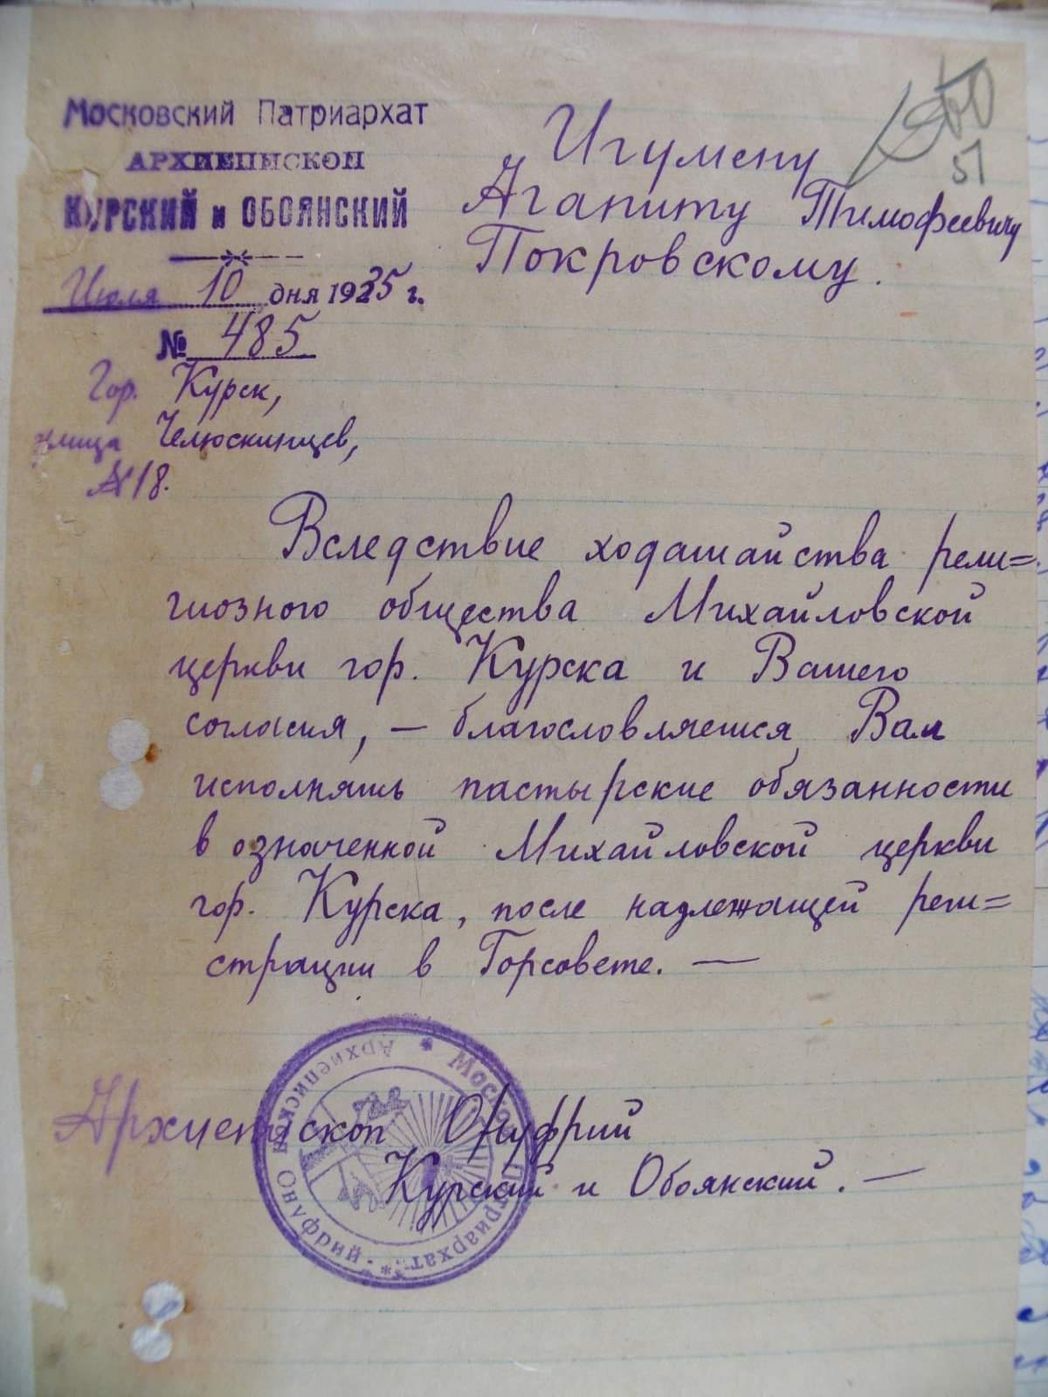 Московский Патриархат
АРХИЕПИСКОП
КУРСКИЙ и ОБОЯНСКИЙ
Июля 10 дня 1935 г.
№ 485
Гор. Курск,
улица Челюскинцев,
№ 18.
51
Игумену
Агапиту Тимофеевичу
Покровскому.
Вследствие ходатайства рели=
гиозного общества Михайловской
церкви гор. Курска и Вашего
согласия, — благословляется Вам
исполнять пастырские обязанности
в означенной Михайловской церкви
гор. Курска, после надлежащей реги=
страции в Горсовете. —
Архиепископ Онуфрий
Курский и Обоянский. —
* Москов. Патриархат. * Архиепископ Онуфрий